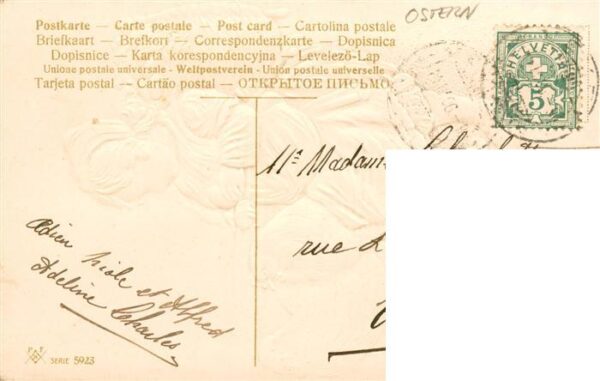 OSTERN
Postkarte — Carte postale — Post card — Cartolina postale
Briefkaart — Brefkort — Correspondenzkarte — Dopisnica
Dopisnice — Karta korespondencyjna — Levelező-Lap
Unione postale universale - Weltpostverein - Union postale universelle
Tarjeta postal — Cartão postal — ОТКРЫТОЕ ПИСЬМО
HELVETIA
5
Madam
rue
et Alfred
Adeline Charles
P F B
SERIE 5923